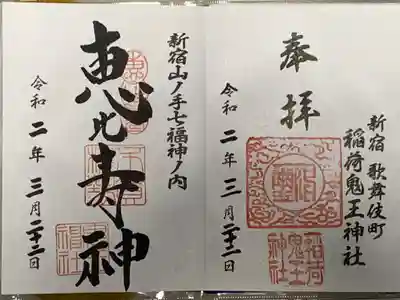 奉拝
新宿 歌舞伎町
稲荷鬼王神社
令和二年三月二十二日
稲荷
鬼王
神社
新宿山ノ手七福神ノ内
恵比寿神
令和二年三月二十二日